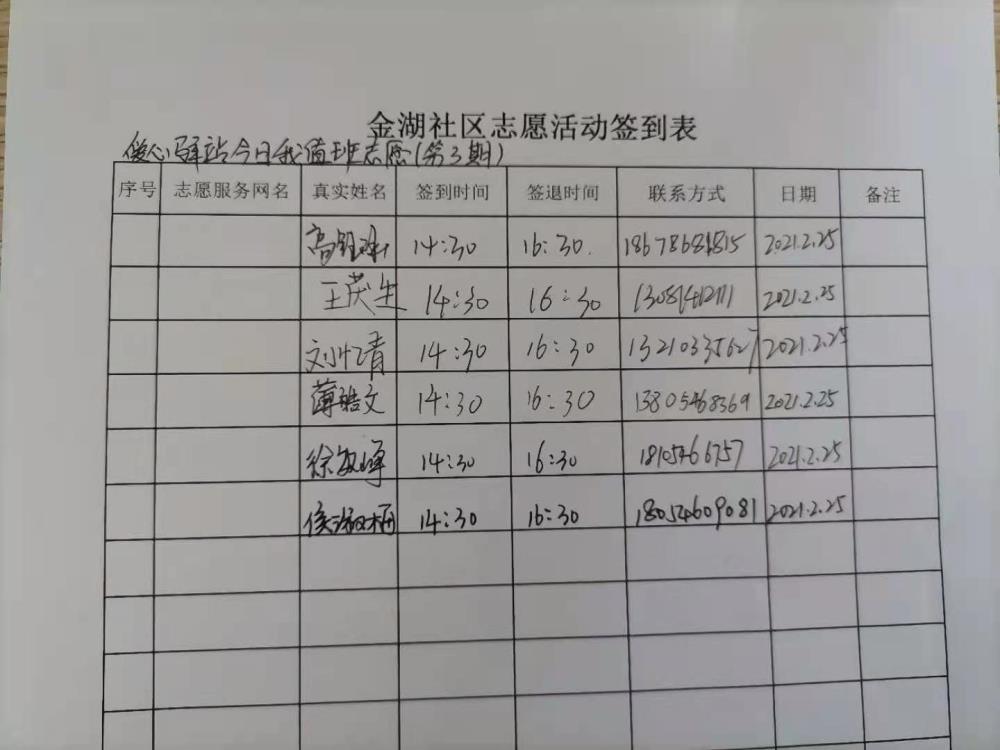 金湖社区志愿活动签到表
爱心驿站今日我值班志愿(第3期)
序号 志愿服务网名 真实姓名 签到时间 签退时间 联系方式 日期 备注
14:30 16:30. 18678681815 2021.2.25
王茂生 14:30 16:30 2021.2.25
刘忆青 14:30 16:30 13210335627 2021.2.25
薄皓文 14:30 16:30 13805468369 2021.2.25
14:30 16:30 2021.2.25
侯淑梅 14:30 16:30 18054609081 2021.2.25